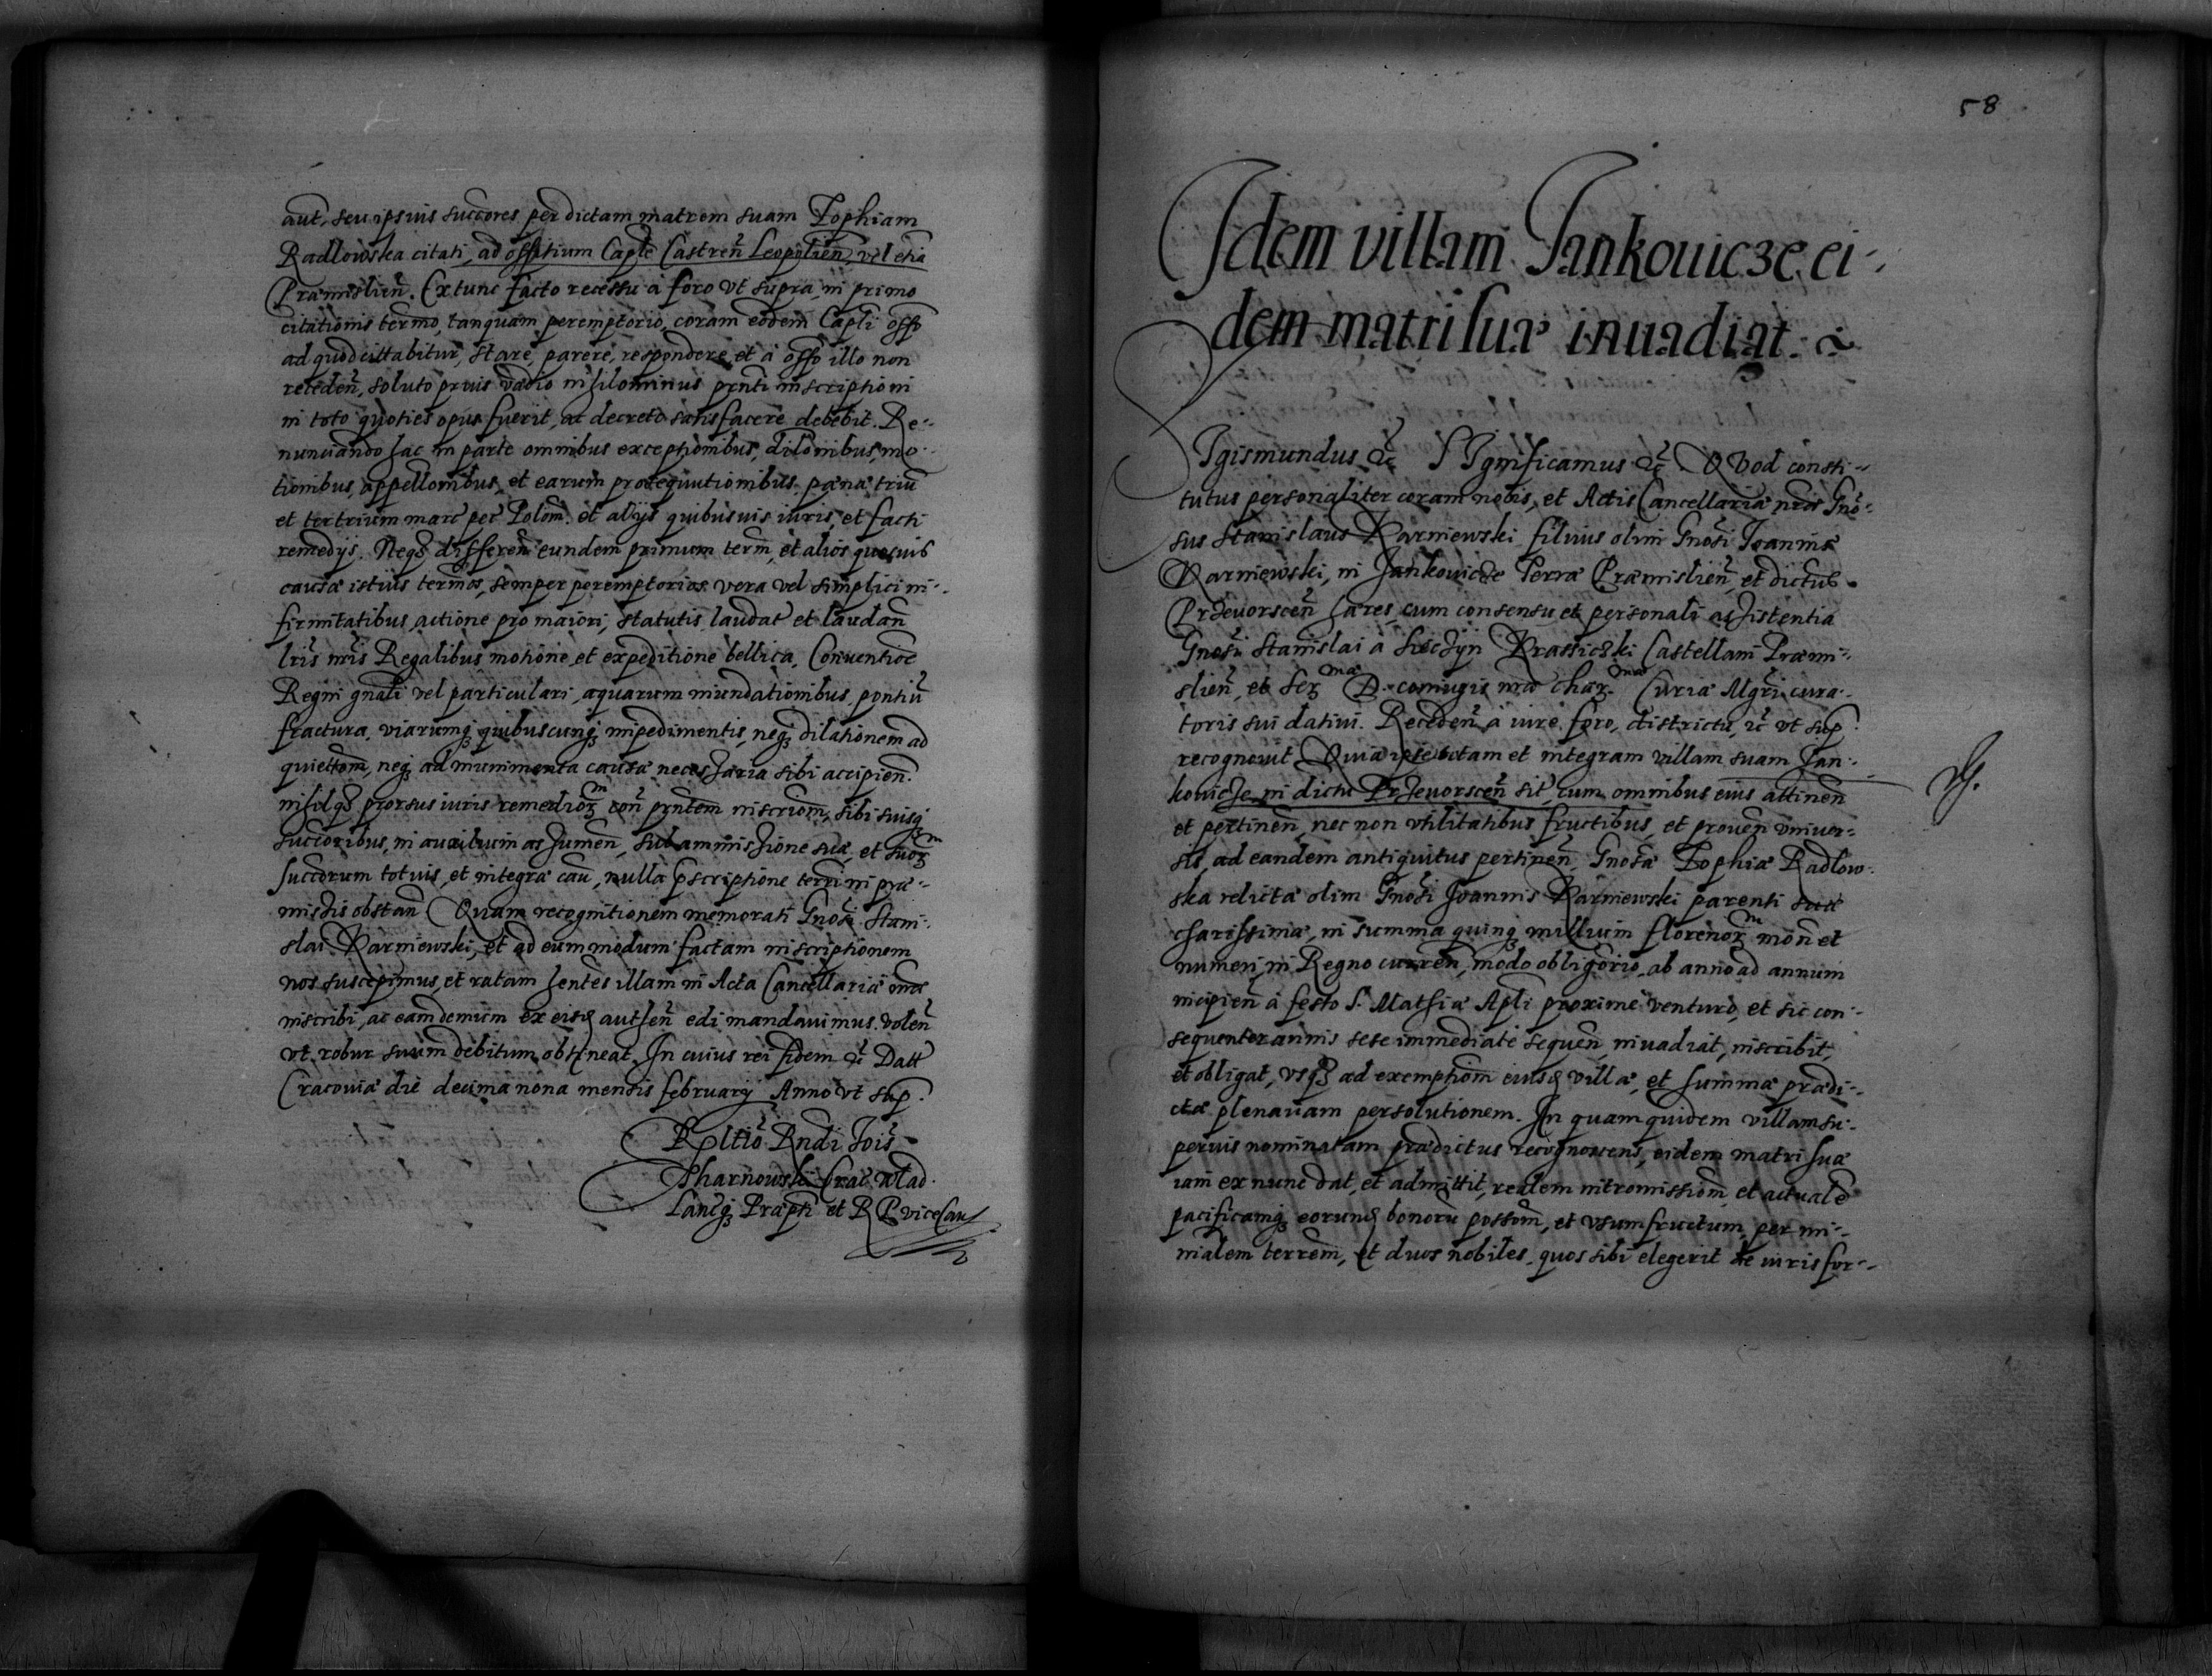 aut, seu ipsius succores per dictam matrem suam Zophiam
Radlowska citati, ad offitium Captle Castren̄ Leopolien̄, vel etiā
Præmislien̄. Extunc facto recessu à foro vt supra, in primo
citationis termo, tanquam peremptorio, coram eodem Capli offo
ad quod cittabitur, stare, parere, respondere, et à offo illo non
receden̄, soluto prius vadio nihilominus pn̄ti inscriptioni
in toto quoties opus fuerit, ac decreto satisfacere debebit. Re-
nunciando hac in parte omnibus exceptionibus, dilōnibus, mo-
tionibus, appellōnibus, et earum prosequutionibus, pæna triū
et tertrium marc pec Polon̄. et alijs quibusuis iuris, et facti
remedijs. Neqꝫ differen̄ eundem primum term̄, et alios quosuis
causæ istius termōs, semper peremptorios vera vel simplici in-
firmitatibus, actione pro maiori, statutis laudat et laudan̄
lris nr̄is Regalibus motione, et expeditione bellica, Conuentioē
Regni gnali vel particulari, aquarum inundationibus, pontiū
fractura, viarumqꝫ quibuscunqꝫ impedimentis, neqꝫ dilationem ad
quietōm, neqꝫ ad munimenta causæ necessaria sibi accipien̄.
nihilqꝫ prorsus iuris remedioꝝ con̄ pn̄tem inscriōm, sibi suisqꝫ
succoribus, in auxilium assumen̄, sub ammissione suæ, et suoꝝ
succorum totuis, et integræ cau̅, nulla pscriptione terrī in præ-
missis obstan̄ Quam recognitionem memorati Gnosi Stani-
slai Karniewski, et ad eum modum factam inscriptionem
nos suscepimus, et ratam hentes illam in Acta Cancellariæ nræ
inscribi, ac eamdemium ex eisd authen̄ edi mandauimus. volen̄
vt robur suum debitum obtineat. In cuius rei fidem &c Datt
Cracouiæ die decima nona mensis february Anno vt sup.
Rēltio Rndi Jois
Tharnowski Crac Wlad
Lancqꝫ Præpti et R P viceCan
58
Idem villam Jankouicze ei-
dem matri suæ inuadiat.
SIgismundus &c SIgnificamus &c QVod consti-
tutus personaliter coram nobis, et Actis Cancellariæ nræ Gno-
sus Stanislaus Karniewski filius olim Gnosi Joannis
Karniewski, in Jankouicze Terræ Præmislien̄, et dictus
Przeuorscen̄ hæres, cum consensu et personali assistentia
Gnosi Stanislai à Sieczyn Krassiczki Castellani Præmi-
slien̄, et Serma D. coniugis nræ charma Curiæ Mgri cura-
toris sui datiui. Receden̄ à iure, foro, districtu, &c vt sup
recognouit Quia ipse totam et integram villam suam Jan-
kouicze, in dictu Przeuorscen̄ sit, cum omnibus eius attinen̄
et pertinen̄, nec non vtilitatibus fructibus, et prouen̄ vniuer-
sis, ad eandem antiquitus pertinen̄, Gnosæ Zophiæ Radlow-
ska relictæ olim Gnosi Joannis Karniewski parenti suæ
charissimæ, in summa quinqꝫ millium florenoꝝ mon̄ et
numeri, in Regno curren̄, modo obligōrio, ab anno ad annum
incipien̄ à festo S. Mathiæ Apli proxime venturo, et sic con-
sequenter annis sese immediate sequen̄, inuadiat, inscribit,
et obligat, vsqꝫ ad exemptiōm eiusd villæ, et summæ prædi-
ctæ plenariam persolutionem. In quam quidem villam su-
perius nominatam prædictus recognoscens, eidem matri suæ
iam ex nunc dat, et admittit, realem intromissiōm, et actualē
pacificamqꝫ eorund bonorū possōm, et vsumfructum, per mi-
nialem terrēm, et duos nobiles, quos sibi elegerit de iuris for-